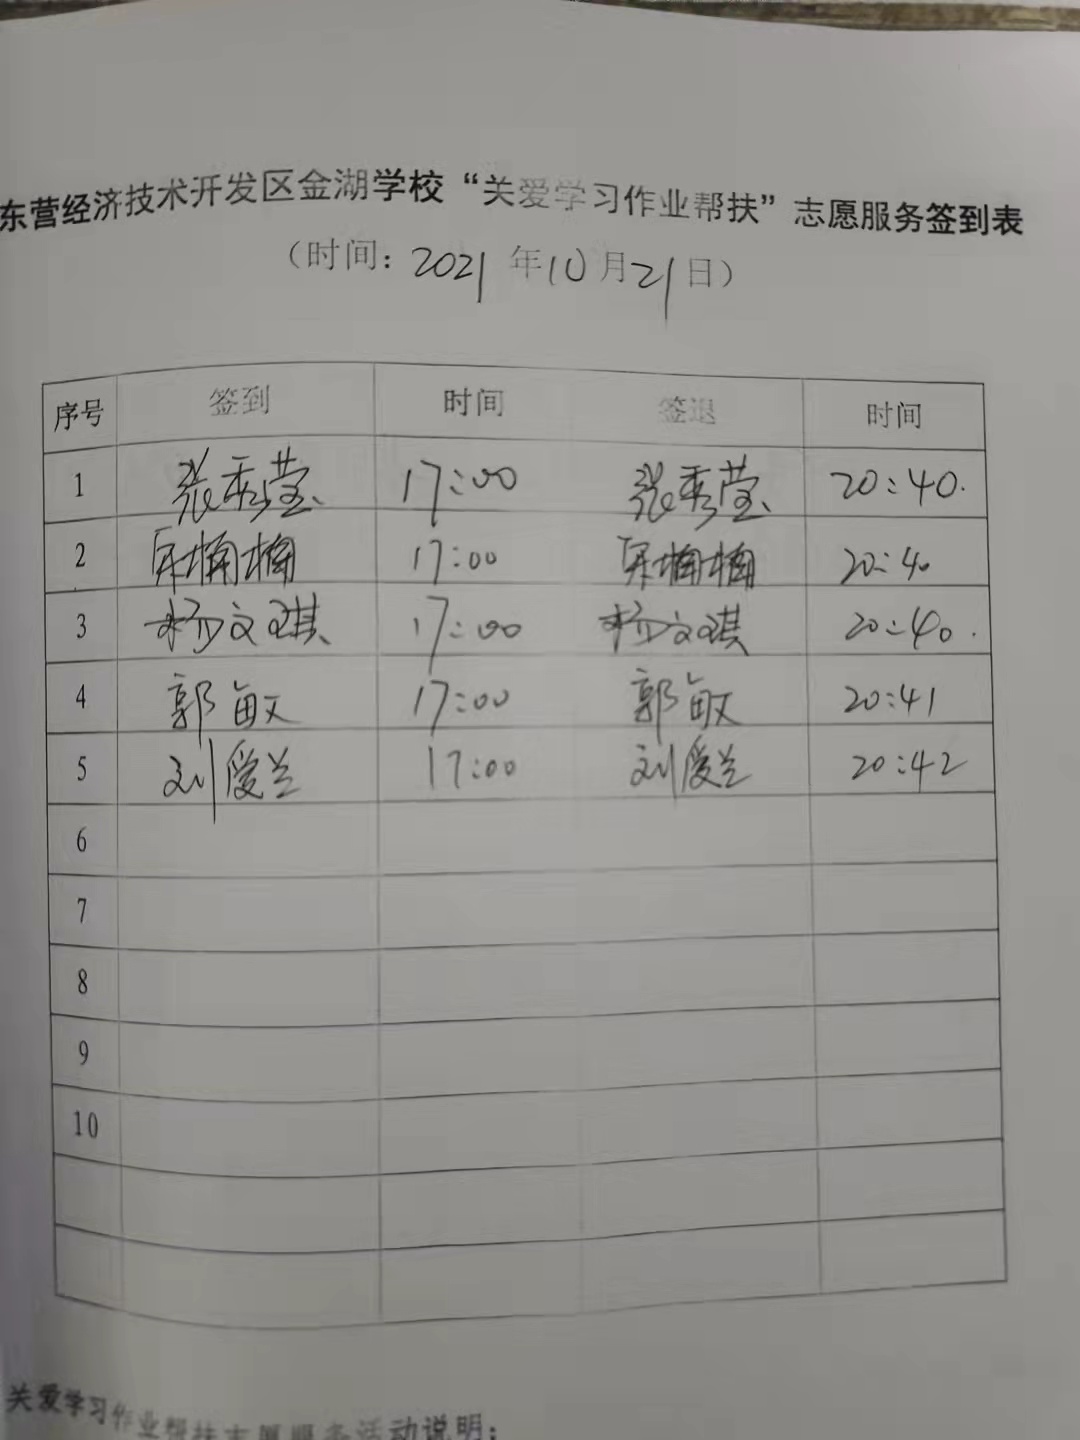 东营经济技术开发区金湖学校“关爱学习作业帮扶”志愿服务签到表
(时间: 2021年10月21日)
序号 签到 时间 签退 时间
1 张秀莹 17:00 张秀莹 20:40.
2 楠楠 17:00 楠楠 20:40
3 杨文琪 17:00 杨文琪 20:40.
4 郭敏 17:00 郭敏 20:41
5 刘爱兰 17:00 刘爱兰 20:42
6
7
8
9
10
关爱学习作业帮扶志愿服务活动说明: